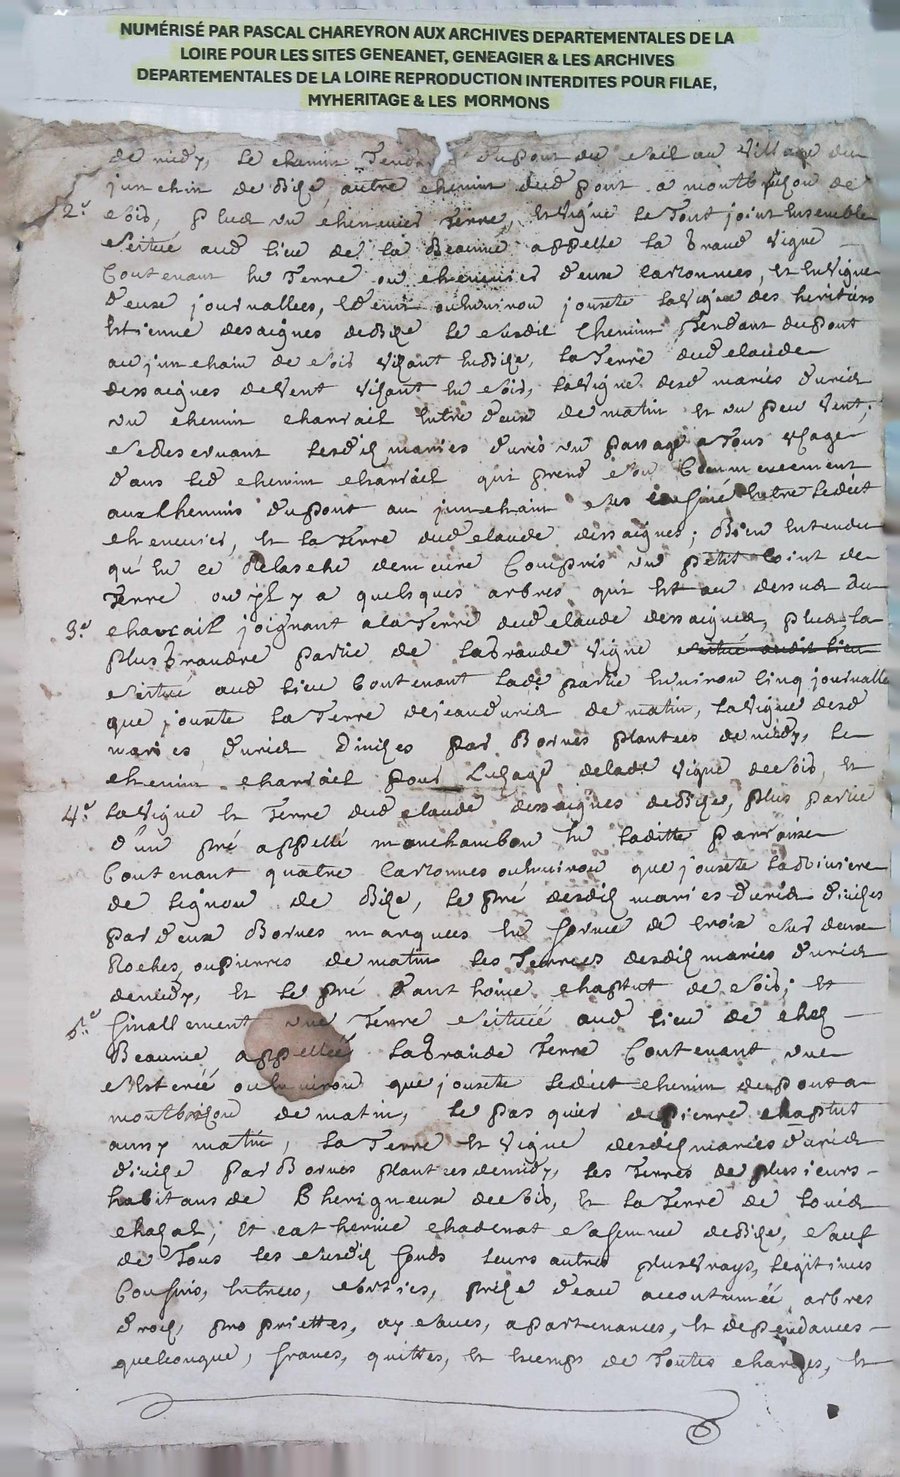 NUMÉRISÉ PAR PASCAL CHAREYRON AUX ARCHIVES DEPARTEMENTALES DE LA
LOIRE POUR LES SITES GENEANET, GENEAGIER & LES ARCHIVES
DEPARTEMENTALES DE LA LOIRE REPRODUCTION INTERDITES POUR FILAE,
MYHERITAGE & LES MORMONS
de midy, le chemin du pont du au village du
junchin de Bize, autre chemin dud pont a montbrison de
2.e soir, plus un chenevier terre, et vigne le tout joint ensemble
scitué aud lieu de la Beaume appellé la Grand vigne
Contenant en Terre ou chenevier deux cartonnees, et en vigne
deux journallees, ou environ jouxte la vigne des heritiers
Etienne dessaignes de Bize le susdit Chemin Tendant du pont
au junchain de soir visant en Bize, la Terre dud claude
dessaignes de vent visant en soir, la vigne desd mariés Duris
un chemin charrail entre deux de matin et un peu vent,
se reservant lesdits mariés Duris un passage a tous usage
dans led chemin charrail qui prend son Commencement
aux Chemins du pont au junchain entre ledict
chenevier, et la Terre dud claude dessaignes; Bien entendu
qu'en ce Relasche demeure Compris un petit Coint de
Terre ou yl y a quelques arbres qui est au dessus du
3.e charrail joignant a la Terre dud claude dessaignes, plus, la
plus Grandre partie de la Grande vigne scitué audit lieu
scitué aud lieu Contenant lad.e partie environ Cinq journallées
que jouxte la Terre de jean Duris de matin, la vigne desd
mariés Duris Divises par Bornes plantées de midy, le
chemin charrail pour L'usage de lad.e vigne de soir, et
4.e la vigne et Terre dud claude dessaignes de Bize, plus partie
d'un pré appellé manchambon en laditte parroisse
Contenant quatre Cartonnes ou environ que jouxte la Riviere
de Lignon de Bize, le pré desdits mariés Duris Divises
par deux Bornes marquees en forme de Croix sur deux
Roches, ou pierres de matin les Terres desdits mariés Duris
de midy, et le pré d'anthoine chaptut de soir; et
5.e finallement une Terre scituée aud lieu de chez
Beaume appellée la Grande Terre Contenant une
ou environ que jouxte ledict chemin du pont a
montbrison de matin, le pasquier de pierre chaptut
aussy matin, la Terre et vigne desdits mariés Duris
Divise par Bornes plantées de midy, les Terres de plusieurs
habitans de Cherigneux de soir, et la Terre de Louis
chazal, et catherine chadenat sa femme de Bize, sauf
de Tous les susdits fonds leurs autres plus vrays, legitimes
Confins, entrées, sorties, prise d'eau accoutumée arbres
droits, proprietes, aysances, apartenances, et dependances
quelconque, francs, quittes, et exempt de Toutes charges, et